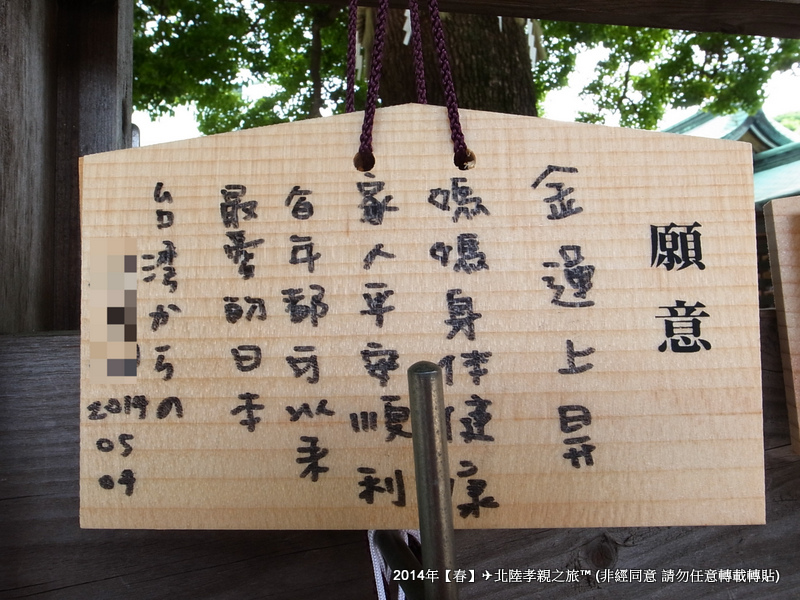 願意
金運上昇
媽媽身体健康
家人平安順利
每年都可以来
最愛的日本
台湾からの
2014
05
04
2014年【春】✈北陸孝親之旅™ (非經同意 請勿任意轉載轉貼)